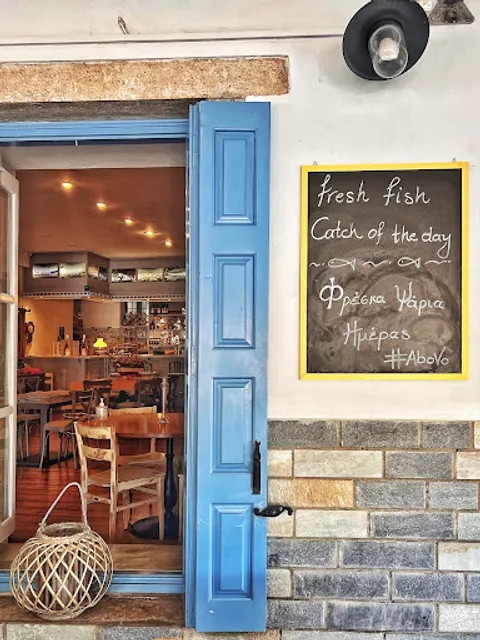 fresh fish
Catch of the day
Φρέσκα Ψάρια
Ημέρας
#AboVo